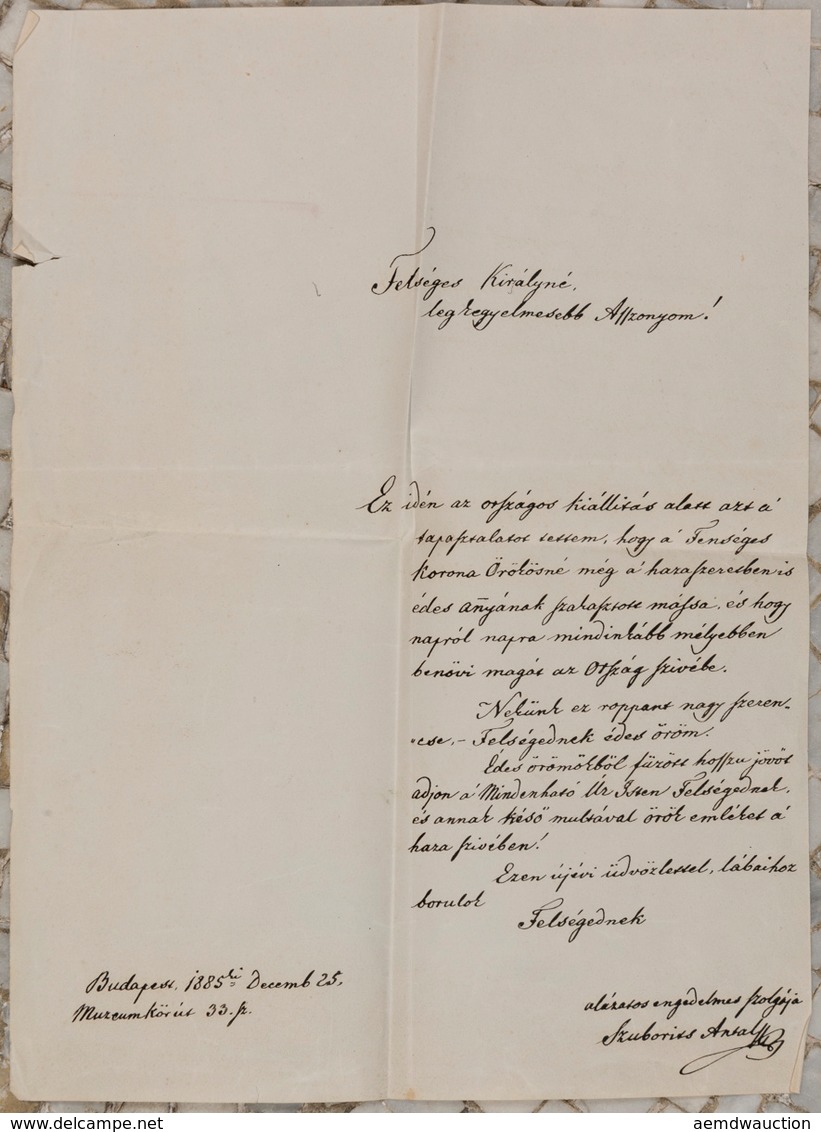 Felséges Királyné,
legkegyelmesebb Asszonyom!
Ez idén az országos kiállitás alatt azt á
tapasztalatot tettem, hogy á Fenséges
Korona Örökösné még á hazaszeretben is
édes añyának szakasztott mássa, és hogy
napról napra mindinkább mélyebben
benövi magát az Ország szivébe.
Nekünk ez roppant nagy szeren-
„cse, – Felségednek édes öröm.
Édes örömökböl füzött hosszu jövöt
adjon á Mindenható Úr Isten Felségednek,
és annak késö multával örök emléket á
haza szivében!
Ezen újévi üdvözlettel, lábaihoz
borulok
Felségednek
Budapest, 1885ki Decemb 25,
Muzeumkörút 33. sz.
alázatos engedelmes szolgája
Szuborits Antal
www.delcampe.net
aemdwauction